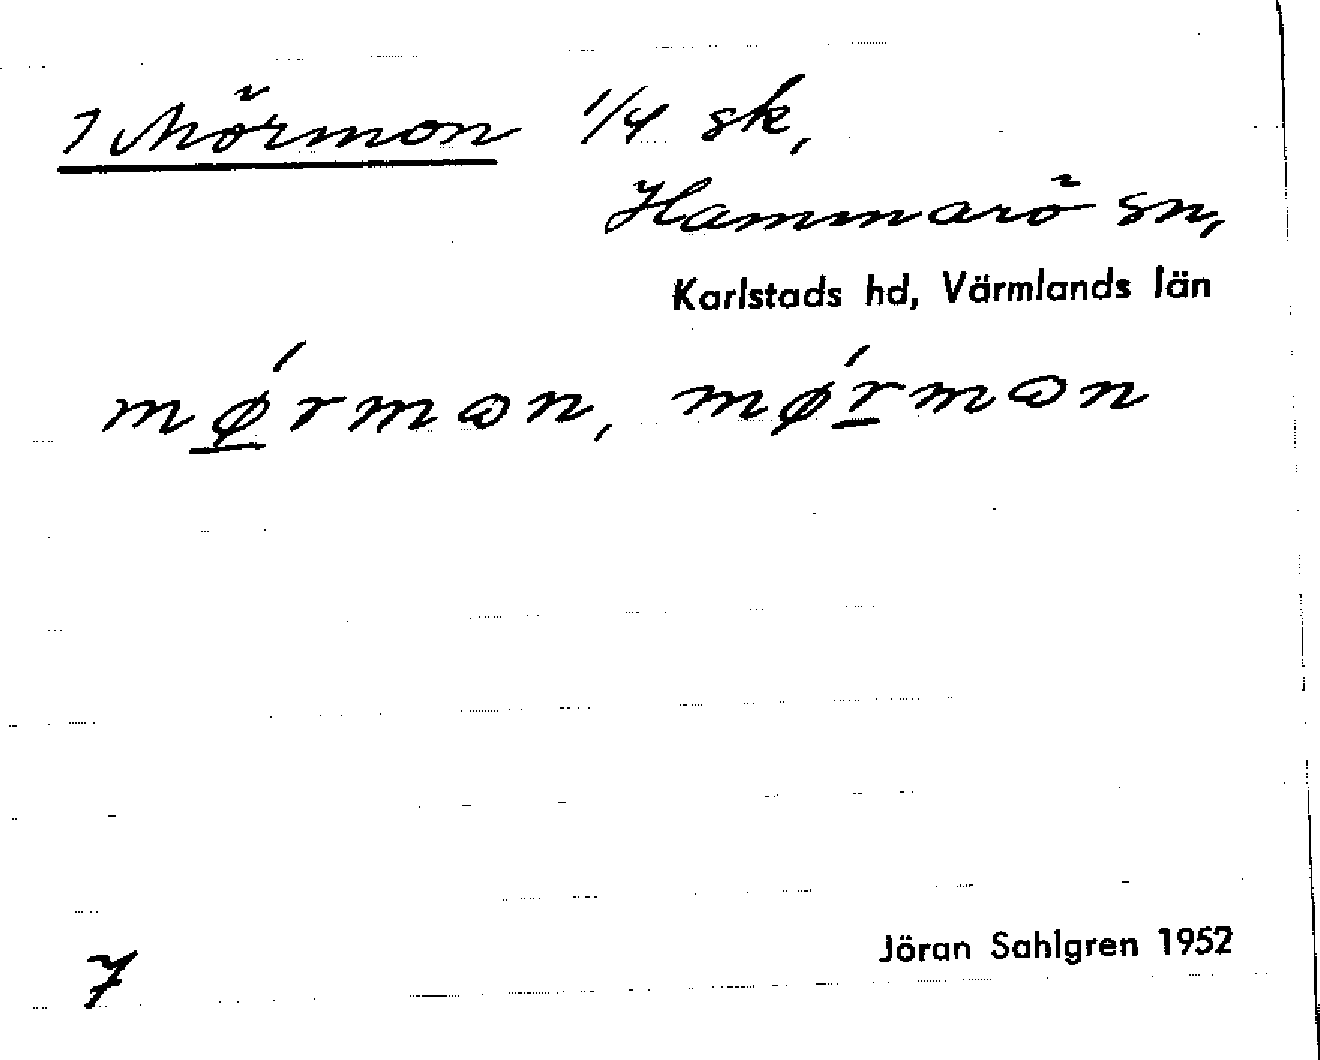 1 Mörmon 1/4 sk,
Hammarö sn,
Karlstads hd, Värmlands län
mǿrmωn, mǿrmωn
7
Jöran Sahlgren 1952